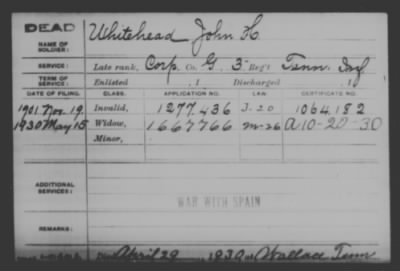 DEAD
NAME OF SOLDIER: Whitehead John H.
SERVICE: Late rank, Corp. Co. G, 3 Reg't Tenn. Inf
TERM OF SERVICE: Enlisted , 1 Discharged , 1
DATE OF FILING. CLASS. APPLICATION NO. LAW. CERTIFICATE NO.
1901 Nov. 19. Invalid, 1277.436 J-20 1064.182
1930 May 15 Widow, 1667766 M-26 A 10-20-30
Minor,
ADDITIONAL SERVICES:
WAR WITH SPAIN
REMARKS:
April 29 1930 Wallace Tenn